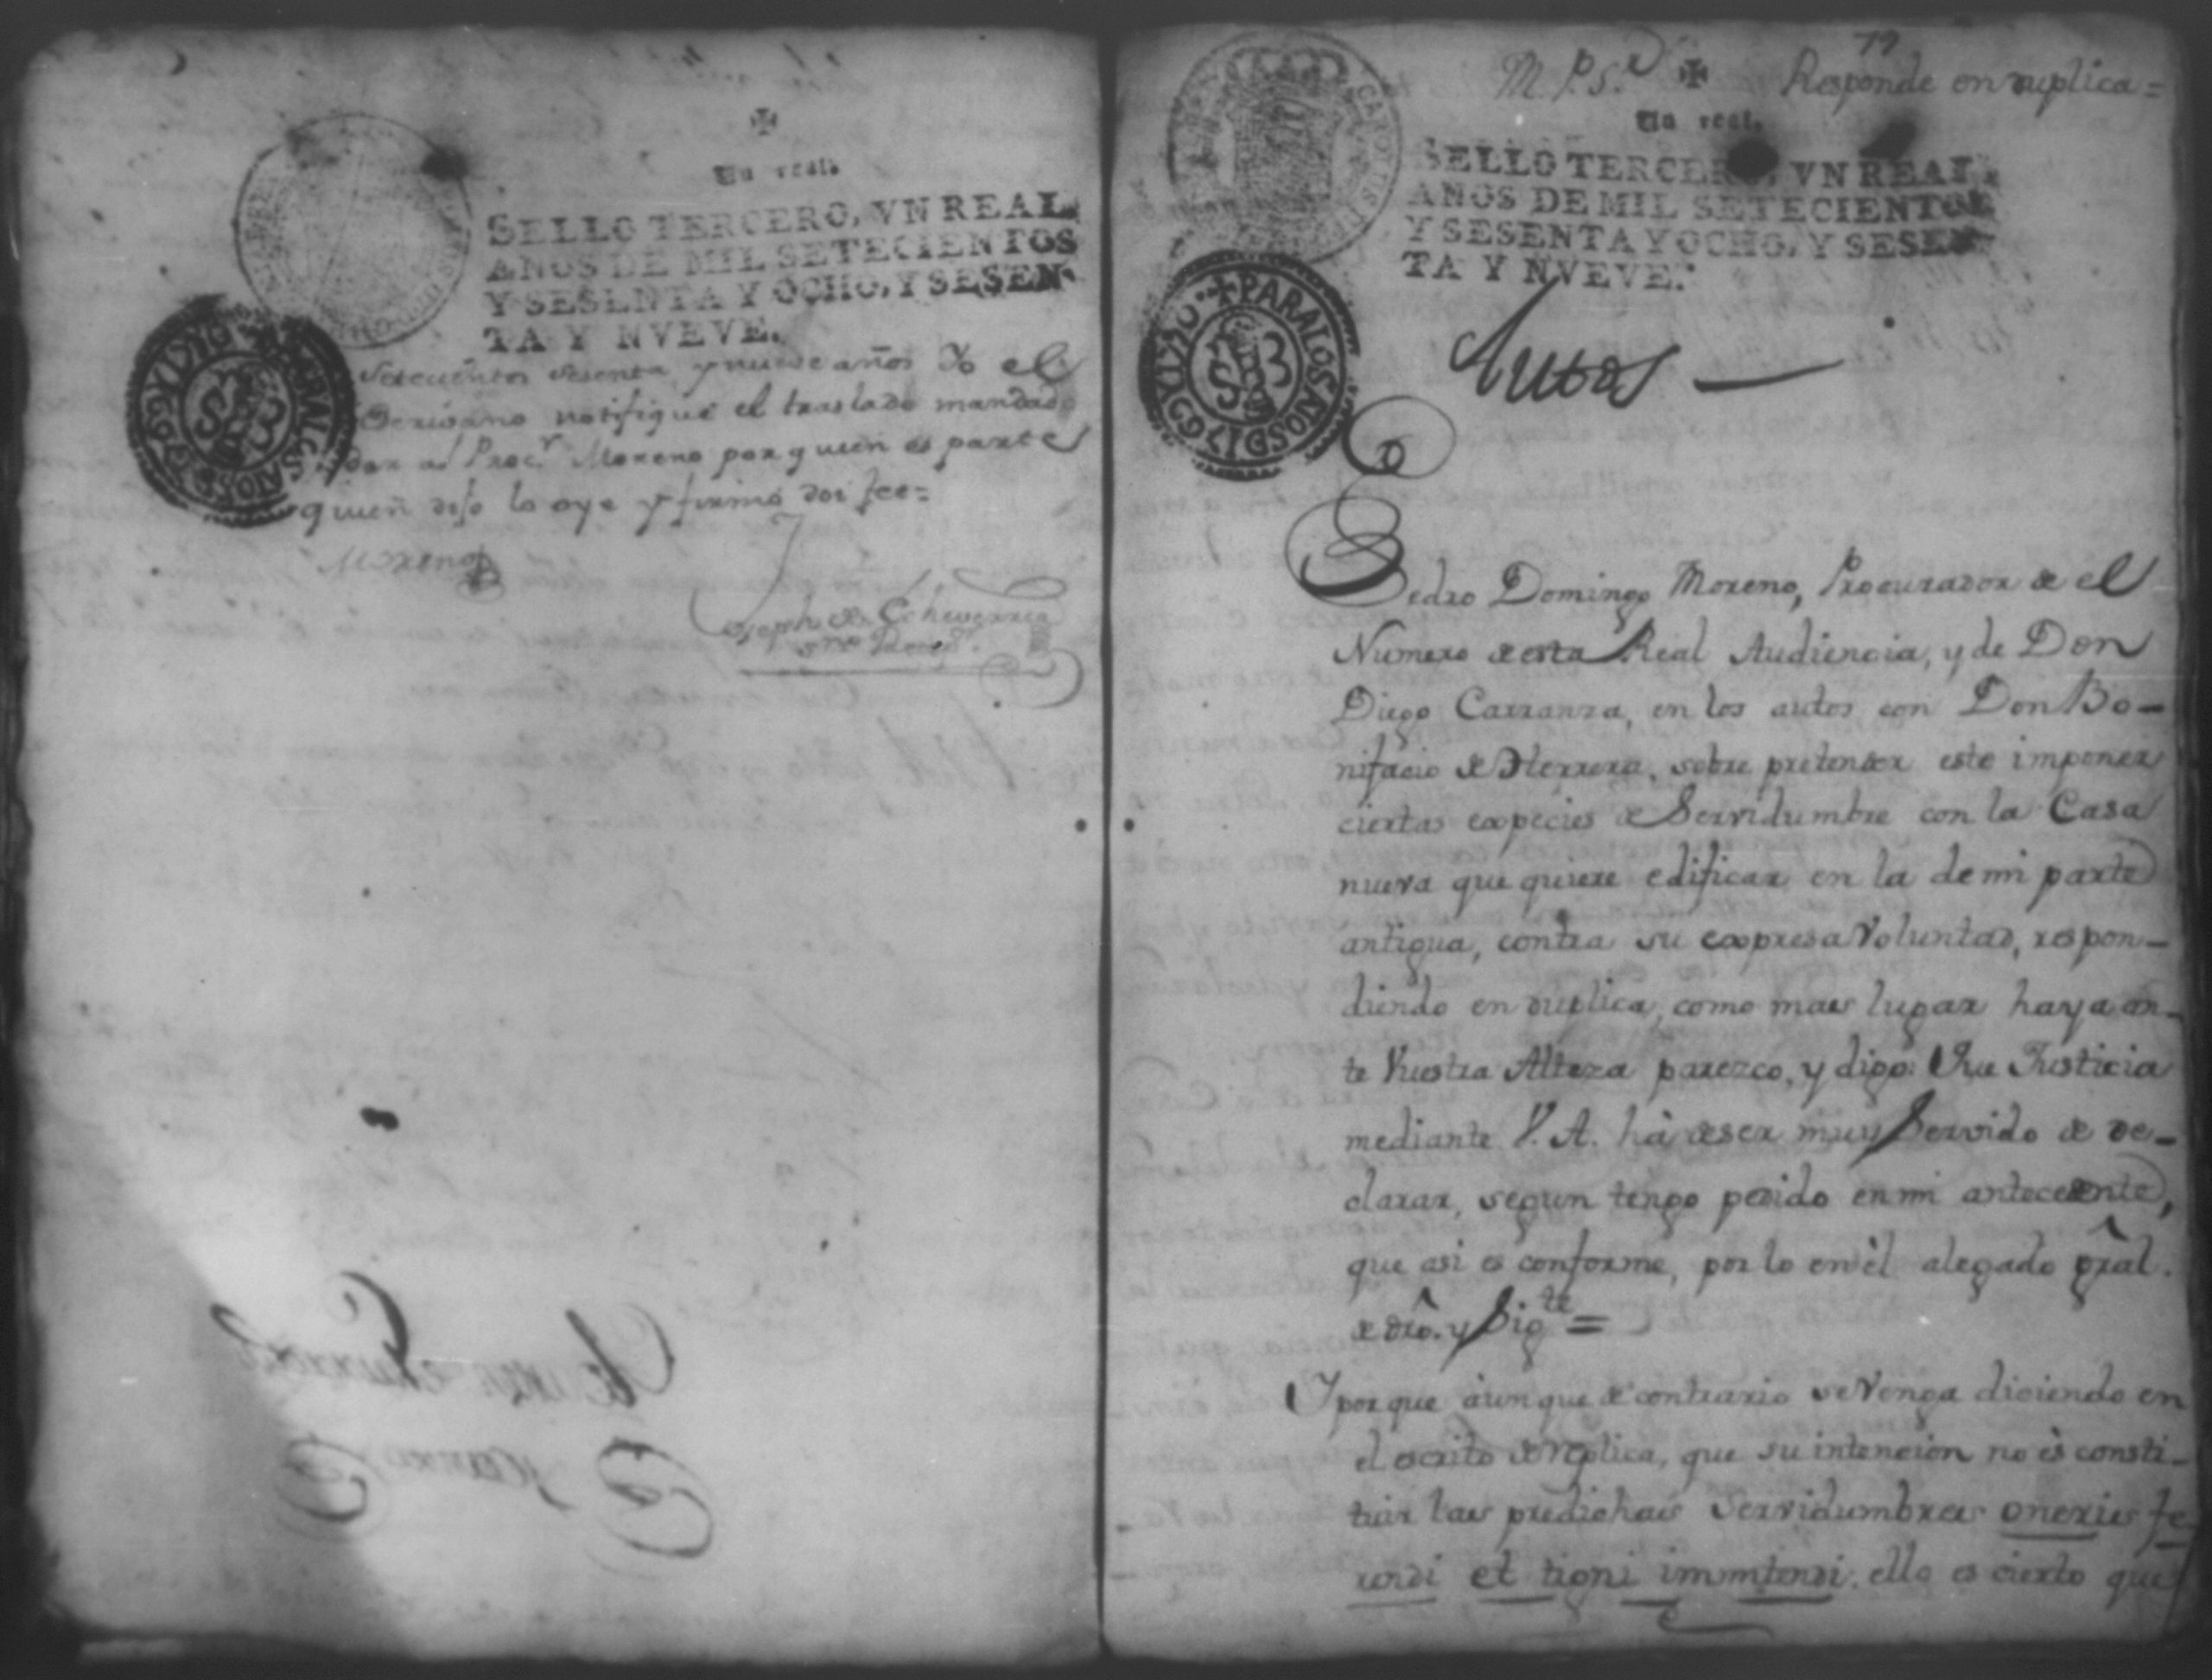 ✠
Un real.
SELLO TERCERO, VN REAL
AÑOS DE MIL SETECIENTOS
Y SESENTA Y OCHO, Y SESEN
TA Y NVEVE.
setecientos sesenta y nueve años Yo el
Escrivano notifique el traslado mandado
dar al Proc.r Moreno por quien es parte
quien dijo lo oye y firmó doi fee=
Moreno
Joseph de Echeverria
M. P. S.r ✠ Responde en duplica=
Un real.
SELLO TERCERO, VN REAL
AÑOS DE MIL SETECIENTOS
Y SESENTA Y OCHO, Y SESEN
TA Y NVEVE.
PARA LOS AÑOS D 1769 Y 1770
S 3
Autos —
Pedro Domingo Moreno, Procurador de el
Numero de esta Real Audiencia, y de Don
Diego Carranza, en los autos con Don Bo-
nifacio de Herrera, sobre pretender este imponer
ciertas especies de Servidumbre con la Casa
nueva que quiere edificar en la de mi parte
antigua, contra su expresa Voluntad, respon-
diendo en duplica, como mas lugar haya an-
te Vuestra Alteza parezco, y digo: Que Justicia
mediante V. A. há de ser muy Servido de de-
clarar, segun tengo pedido en mi antecedente,
que asi es conforme, por lo en él alegado gral.
de dro. y Sigte =
Y porque aunque de contrario se Venga diciendo en
el escrito de replica, que su intencion no és consti-
tuir las predichas Servidumbres oneris fe
rendi et tigni immitendi, ello es cierto que